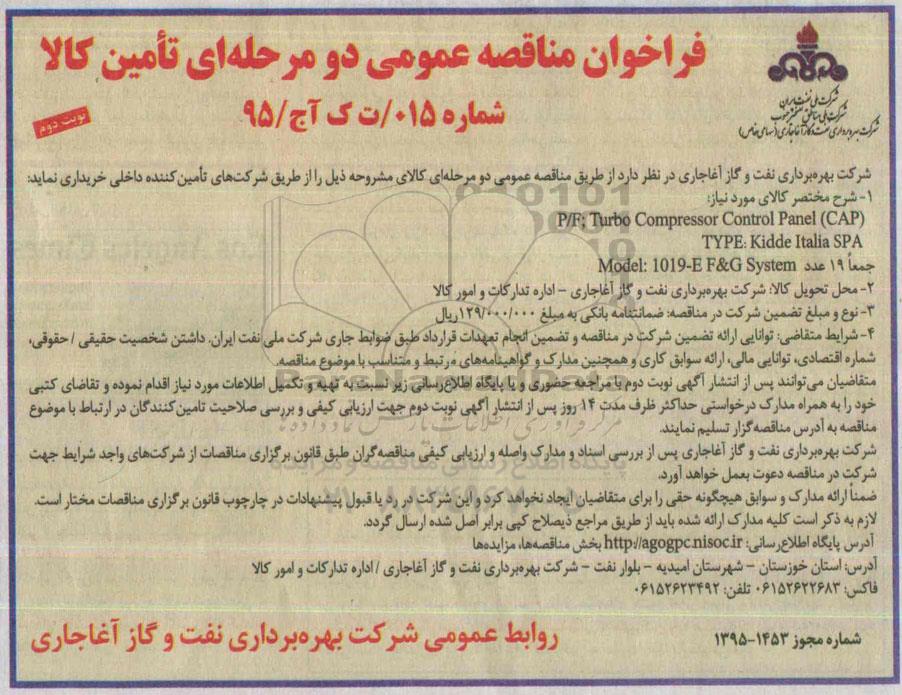 فراخوان مناقصه عمومی دو مرحله‌ای تأمین کالا
شماره ۰۱۵/ت ک آج/۹۵
نوبت دوم
شرکت ملی نفت ایران
شرکت ملی مناطق نفتخیز جنوب
شرکت بهره‌برداری نفت و گاز آغاجاری (سهامی خاص)
شرکت بهره‌برداری نفت و گاز آغاجاری در نظر دارد از طریق مناقصه عمومی دو مرحله‌ای کالای مشروحه ذیل را از طریق شرکت‌های تأمین‌کننده داخلی خریداری نماید:
۱- شرح مختصر کالای مورد نیاز:
P/F; Turbo Compressor Control Panel (CAP)
TYPE: Kidde Italia SPA
جمعاً ۱۹ عدد Model: 1019-E F&G System
۲- محل تحویل کالا: شرکت بهره‌برداری نفت و گاز آغاجاری - اداره تدارکات و امور کالا
۳- نوع و مبلغ تضمین شرکت در مناقصه: ضمانتنامه بانکی به مبلغ ۱۲۹/۰۰۰/۰۰۰ریال
۴- شرایط متقاضی: توانایی ارائه تضمین شرکت در مناقصه و تضمین انجام تعهدات قرارداد طبق ضوابط جاری شرکت ملی نفت ایران. داشتن شخصیت حقیقی / حقوقی،
شماره اقتصادی، توانایی مالی، ارائه سوابق کاری و همچنین مدارک و گواهینامه‌های مرتبط و متناسب با موضوع مناقصه.
متقاضیان می‌توانند پس از انتشار آگهی نوبت دوم با مراجعه حضوری و یا پایگاه اطلاع‌رسانی زیر نسبت به تهیه و تکمیل اطلاعات مورد نیاز اقدام نموده و تقاضای کتبی
خود را به همراه مدارک درخواستی حداکثر ظرف مدت ۱۴ روز پس از انتشار آگهی نوبت دوم جهت ارزیابی کیفی و بررسی صلاحیت تامین‌کنندگان در ارتباط با موضوع
مناقصه به آدرس مناقصه‌گزار تسلیم نمایند.
شرکت بهره‌برداری نفت و گاز آغاجاری پس از بررسی اسناد و مدارک واصله و ارزیابی کیفی مناقصه‌گران طبق قانون برگزاری مناقصات از شرکت‌های واجد شرایط جهت
شرکت در مناقصه دعوت بعمل خواهد آورد.
ضمناً ارائه مدارک و سوابق هیچگونه حقی را برای متقاضیان ایجاد نخواهد کرد و این شرکت در رد یا قبول پیشنهادات در چارچوب قانون برگزاری مناقصات مختار است.
لازم به ذکر است کلیه مدارک ارائه شده باید از طریق مراجع ذیصلاح کپی برابر اصل شده ارسال گردد.
آدرس پایگاه اطلاع‌رسانی: http://agogpc.nisoc.ir بخش مناقصه‌ها، مزایده‌ها
آدرس: استان خوزستان - شهرستان امیدیه - بلوار نفت - شرکت بهره‌برداری نفت و گاز آغاجاری / اداره تدارکات و امور کالا
فاکس: ۰۶۱۵۲۶۲۲۶۸۳ تلفن: ۰۶۱۵۲۶۲۳۴۹۲
شماره مجوز ۱۴۵۳-۱۳۹۵
روابط عمومی شرکت بهره‌برداری نفت و گاز آغاجاری